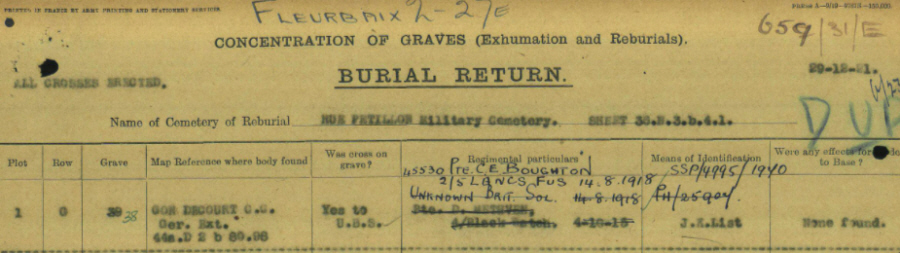 PRINTED IN FRANCE BY ARMY PRINTING AND STATIONERY SERVICES.
FLEURBAIX 2-27E
659/31/E
CONCENTRATION OF GRAVES (Exhumation and Reburials).
ALL CROSSES ERECTED.
BURIAL RETURN.
29-12-21.
DUP
Name of Cemetery of Reburial RUE PETILLON Military Cemetery. SHEET 36.N.3.b.4.1.
Plot Row Grave Map Reference where body found Was cross on grave? Regimental particulars Means of Identification Were any effects to Base?
45530 PTE. C.E. BOUGHTON SSP/4995/1940
2/5 LANCS FUS 14.8.1918
UNKNOWN BRIT. SOL. 14.8.1918 PH/25904
1 O 39 38 GON DECOURT C.C. Yes to Pte. D. METHVEN,
Ger. Ext. U.B.S. 4/Black Watch. 4-10-15 J.K.List None found.
44a.D 2 b 80.98